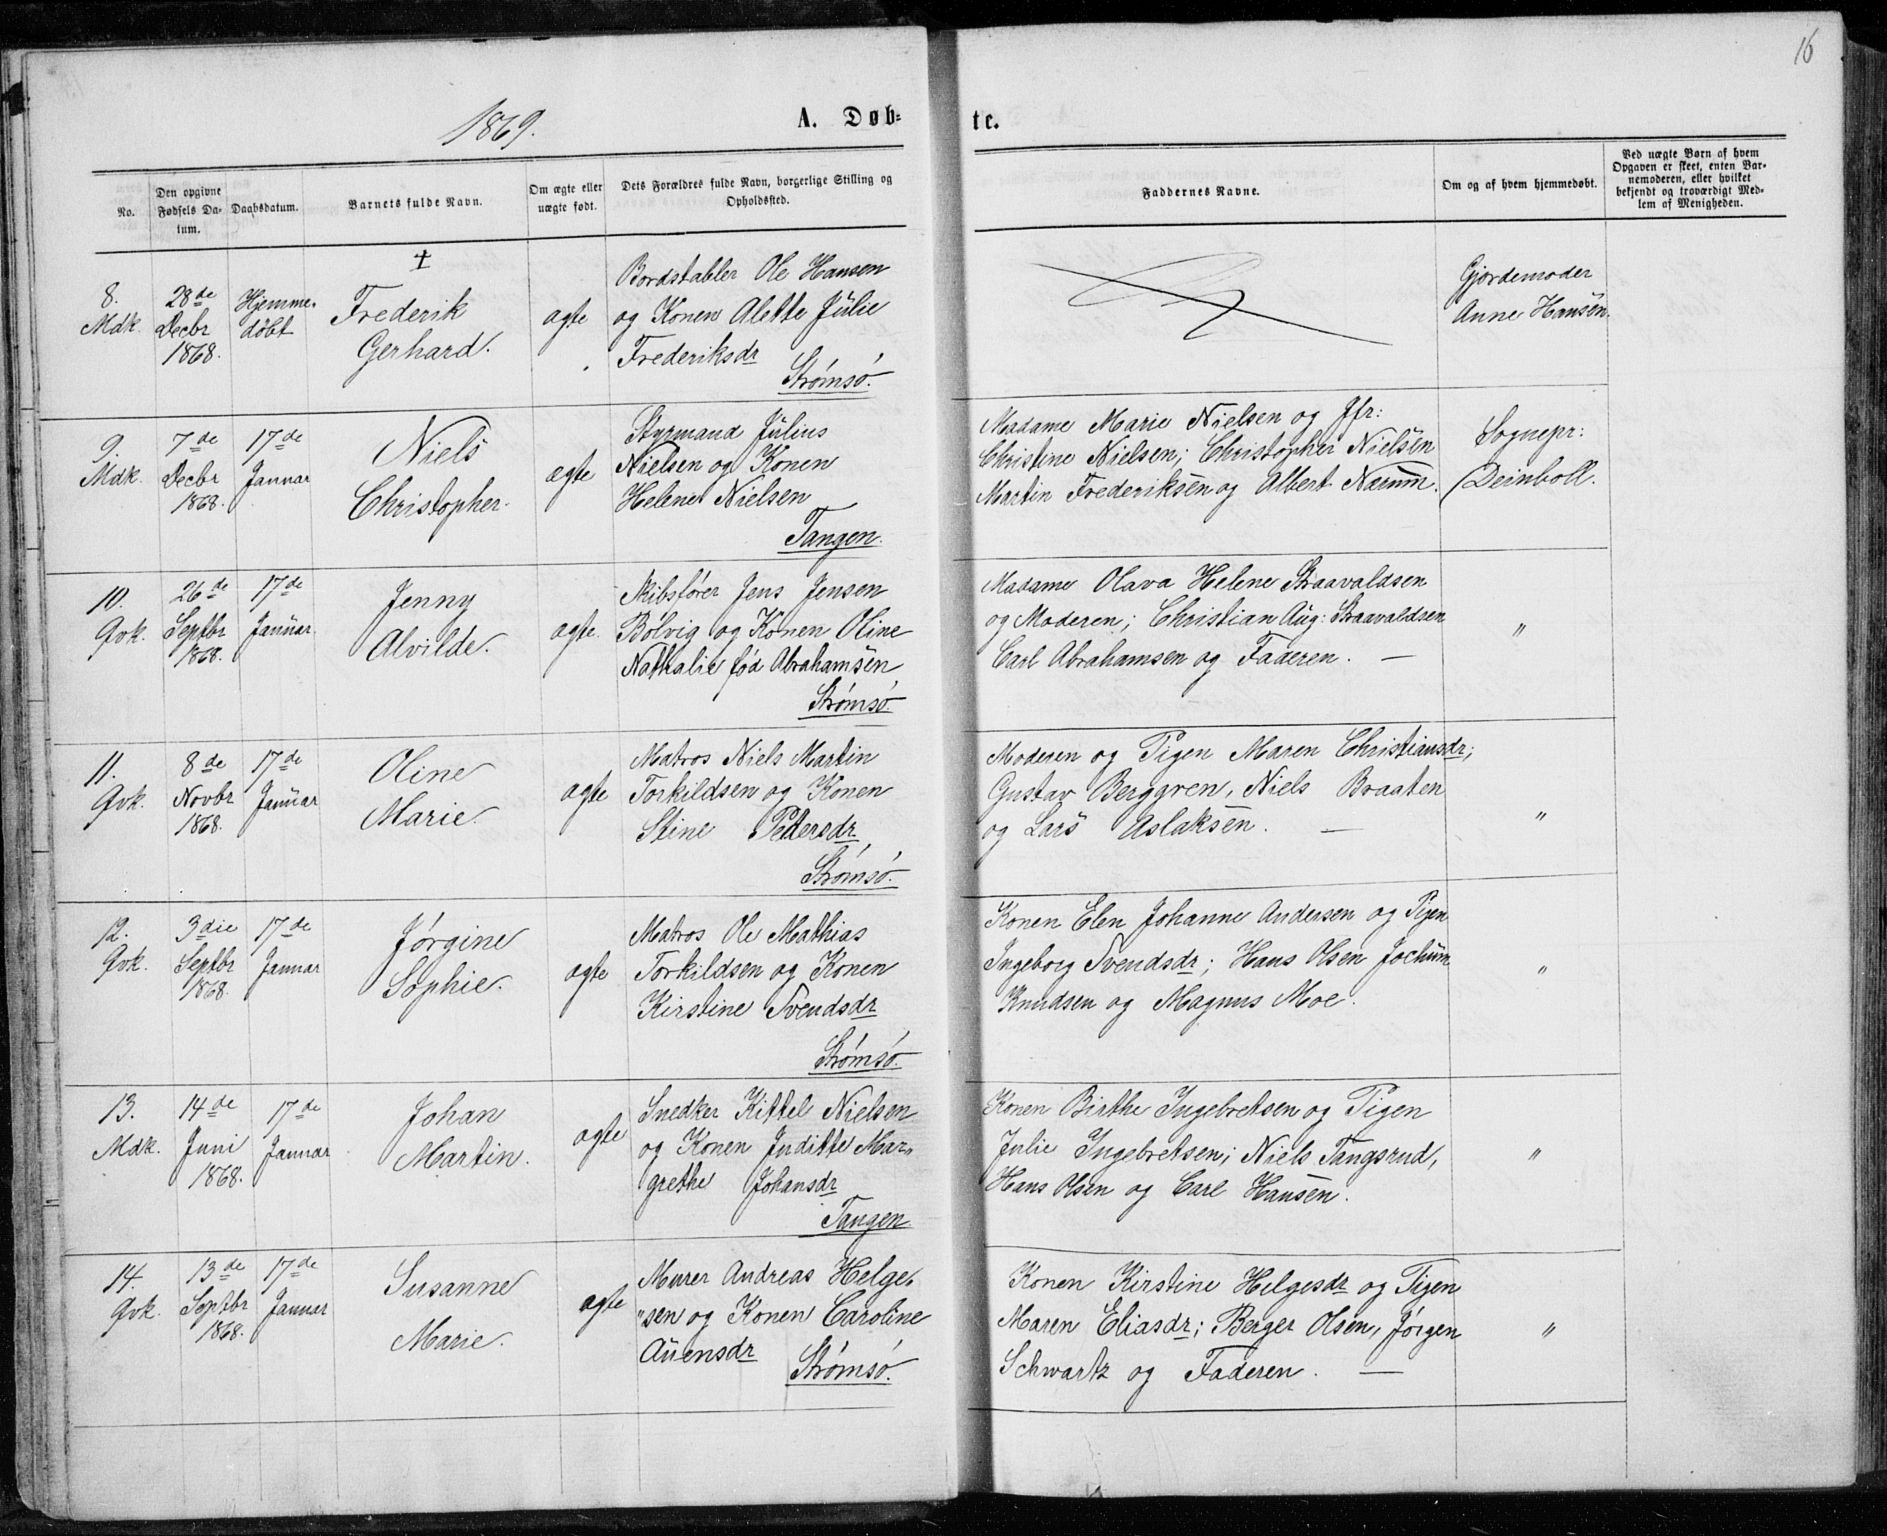 16
1869.
A. Døb-
te.
No.
Den opgivne
Fødsels Da-
tum.
Daabsdatum.
Barnets fulde Navn.
Om ægte eller
uægte født.
Dets Forældres fulde Navn, borgerlige Stilling og
Opholdssted.
Faddernes Navne.
Om og af hvem hjemmedøbt.
Ved uægte Børn af hvem
Opgaven er skeet, enten Bar-
nemoderen, eller hvilket
bekjendt og troværdigt Med-
lem af Menigheden.
8.
Mdk.
28de
Decbr
1868.
Hjemme-
døbt
†
Frederik
Gerhard.
ægte
Bordstabler Ole Hansen
og Konen Alette Julie
Frederiksdr
Strømsø.
Gjordemoder
Anne Hansen.
9.
Mdk.
7de
Decbr
1868.
17de
Januar
Niels
Christopher.
ægte
Styrmand Julius
Nielsen og Konen
Helene Nielsen
Tangen.
Madame Marie Nielsen og Jfr:
Christine Nielsen; Christopher Nielsen
Martin Frederiksen og Albert Narum.
Sognepr:
Deinboll.
10.
Qvk.
26de
Septbr
1868.
17de
Januar.
Jenny
Alvilde.
ægte.
Skibsfører Jens Jensen
Bølvig og Konen Oline
Nathalie fød Abrahamsen
Strømsø.
Madame Olava Helene Straavaldsen
og Moderen; Christian Aug: Straavaldsen
Carl Abrahamsen og Faderen. —
"
11.
Qvk.
8de
Novbr
1868.
17de
Januar
Oline
Marie.
ægte
Matros Niels Martin
Torkildsen og Konen
Stine Pedersdr
Strømsø.
Moderen og Pigen Maren Christiansdr;
Gustav Berggren, Niels Braaten
og Lars Aslaksen. —
"
12.
Qvk.
3die
Septbr
1868.
17de
Januar
Jørgine
Sophie.
ægte
Matros Ole Mathias
Torkildsen og Konen
Kirstine Svendsdr
Strømsø.
Konen Elen Johanne Andersen og Pigen
Ingeborg Svendsdr; Hans Olsen Jochum
Knudsen og Magnus Moe.
"
13.
Mdk.
14de
Juni
1868.
17de
Januar
Johan
Martin.
ægte
Snedker Kittel Nielsen
og Konen Juditte Mar-
grethe Johansdr
Tangen
Konen Birthe Ingebretsen og Pigen
Julie Ingebretsen; Niels Tangsrud,
Hans Olsen og Carl Hansen.
"
14.
Qvk.
13de
Septbr
1868.
17de
Januar
Susanne
Marie.
ægte
Murer Andreas Helge-
"sen og Konen Caroline
Auensdr
Strømsø.
Konen Kirstine Helgesdr og Pigen
Maren Eliasdr; Berger Olsen, Jørgen
Schwartz og Faderen. —
"